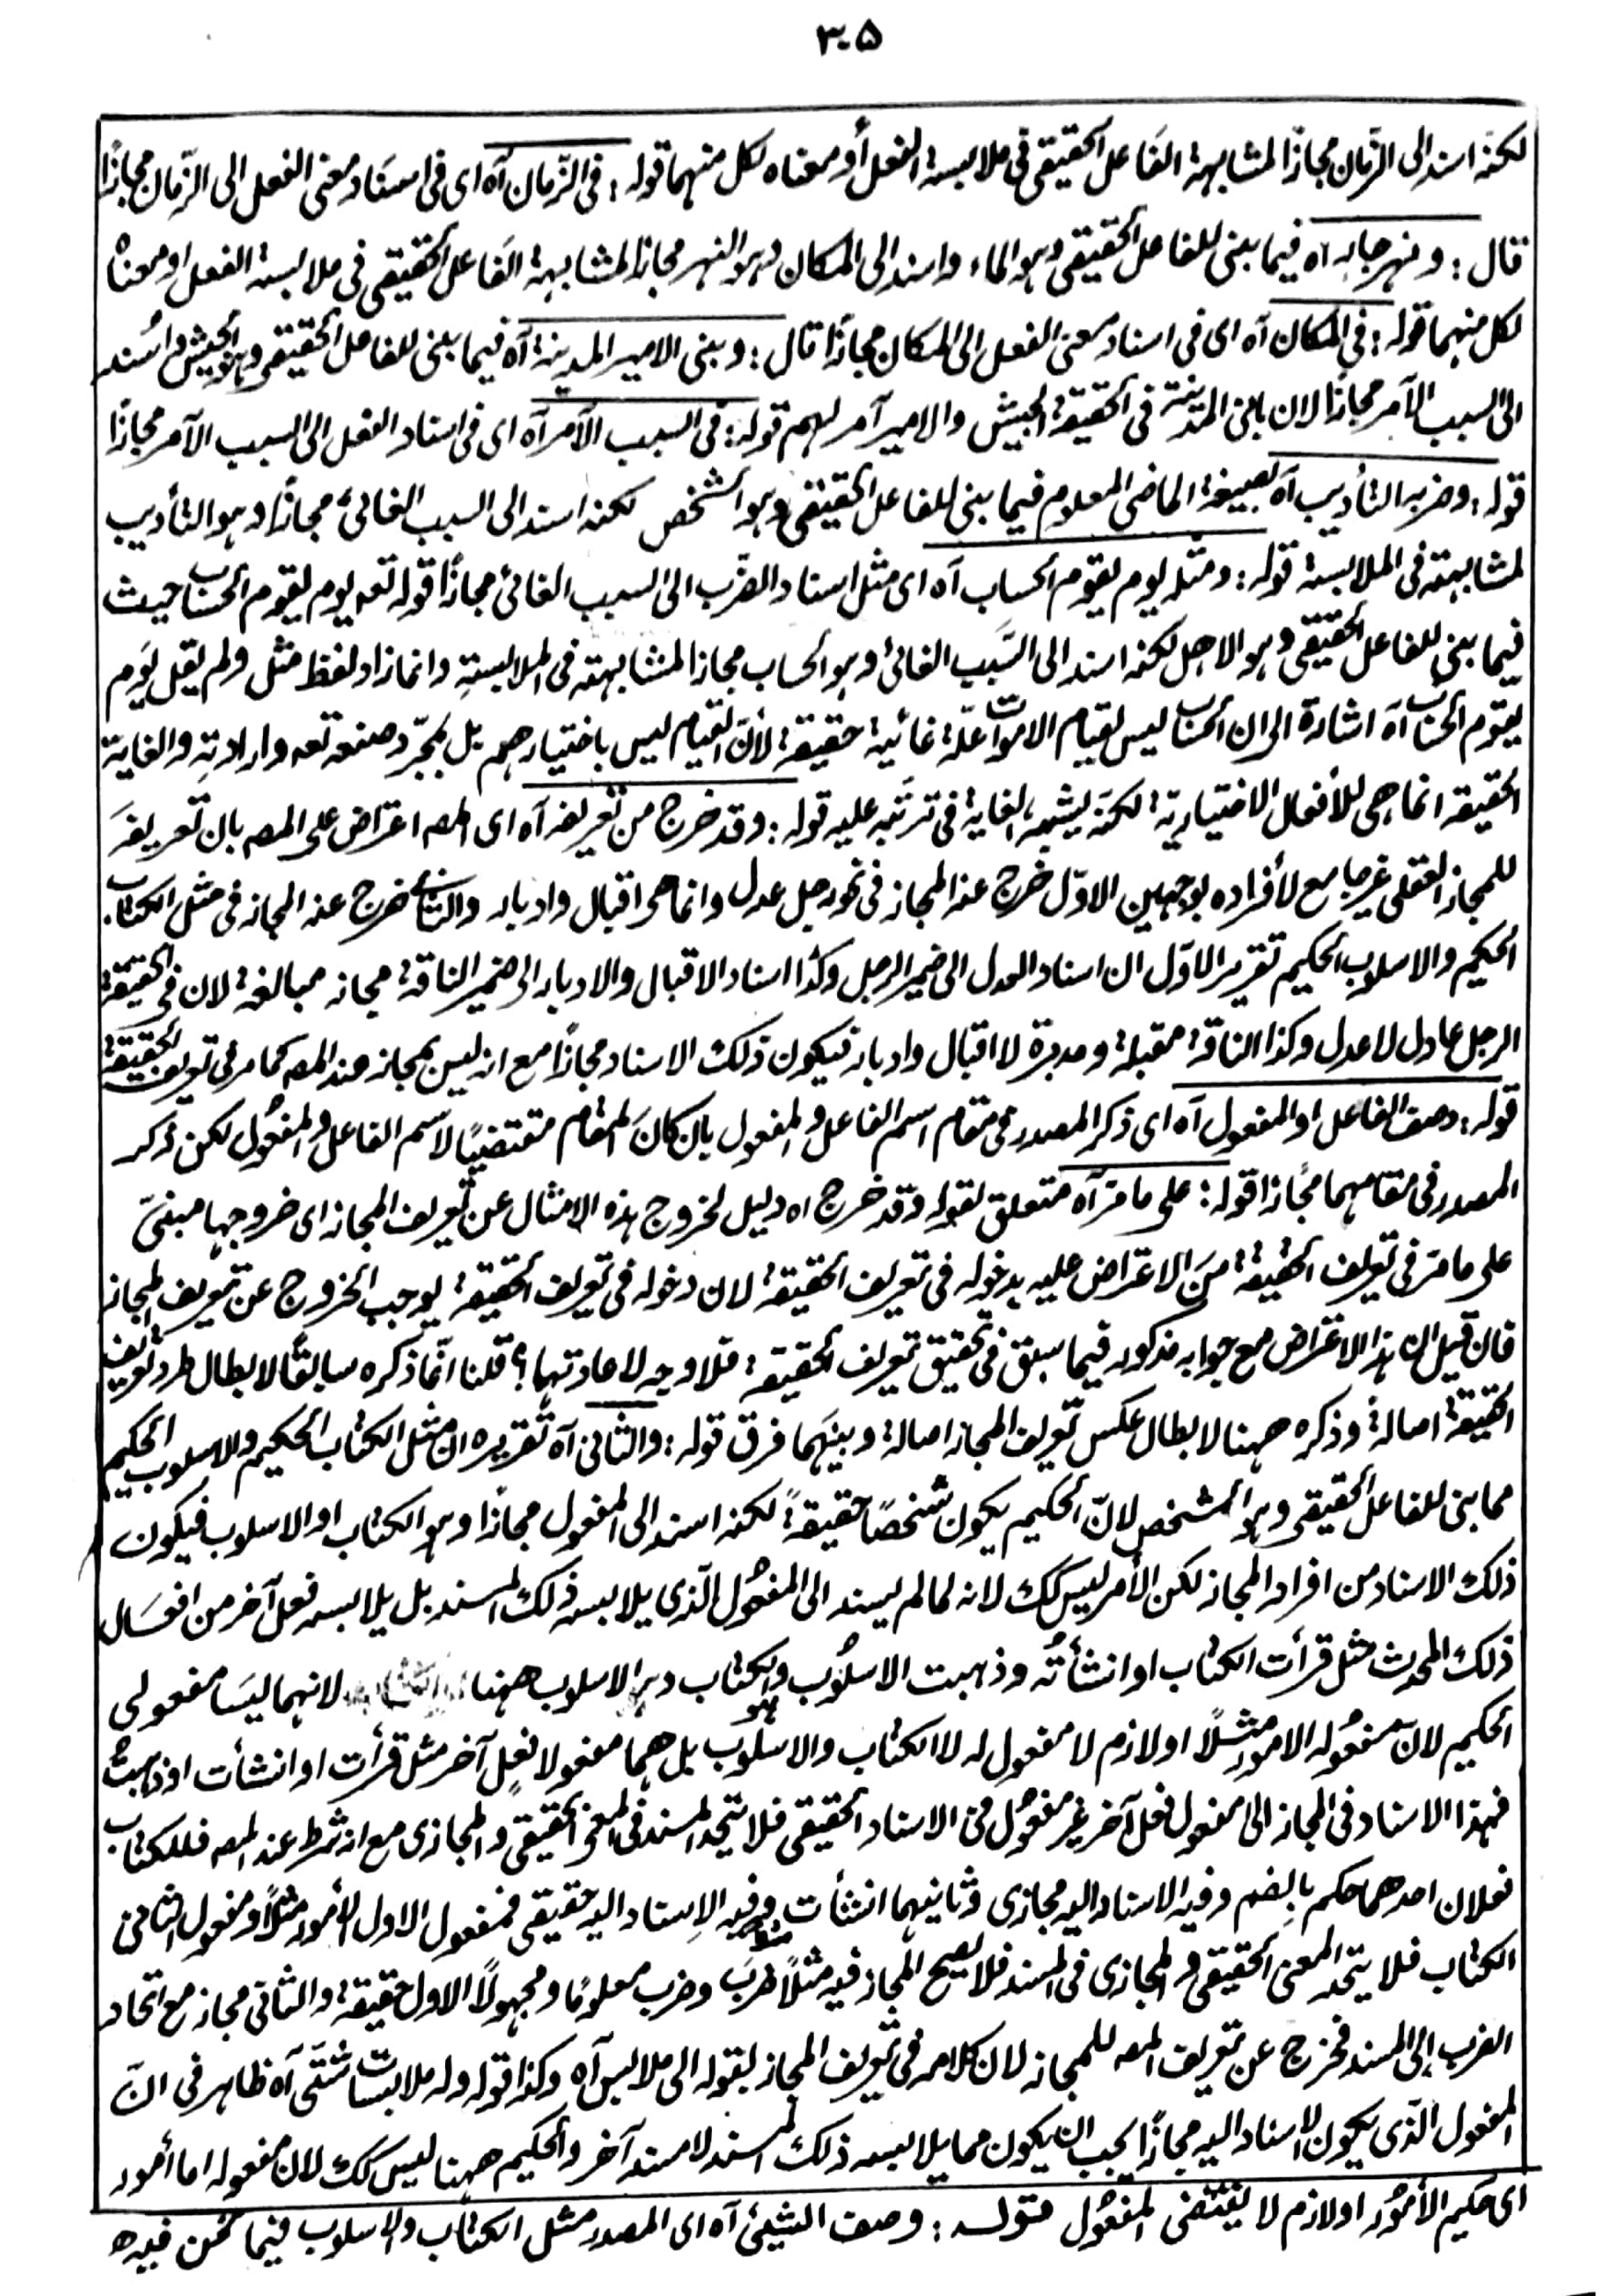 ٣٠٥
لكنه اسند الى الزّمان مجازًا لمشابهة الفاعل الحقيقى فى ملابسة الفعل أو معناه لكل منهما قوله : فى الزّمان آه اى فى اسناد معنى الفعل الى الزّمان مجازًا
قال : ونهر جار آه فيما بنى للفاعل الحقيقى وهو الماء واسند الى المكان وهو النهر مجازًا لمشابهة الفاعل الحقيقى فى ملابسة الفعل او معناه
لكل منهما قوله : فى المكان آه اى فى اسناد معنى الفعل الى المكان مجازًا قال : وبنى الامير المدينة آه فيما بنى للفاعل الحقيقى وهو الجيش واُسند
الى السبب الآمر مجازًا لان بانى المدينة فى الحقيقة الجيش والامير آمر لهم قوله : فى السبب الآمر آه اى فى اسناد الفعل الى السبب الآمر مجازًا
قوله : وضربه التأديب آه بصيغة الماضى المعلوم فيما بنى للفاعل الحقيقى وهو الشخص لكنه اسند الى السبب الغائى مجازًا وهو التأديب
لمشابهته فى الملابسة قوله : ومثله يوم يقوم الحساب آه اى مثل اسناد الضّرب الى السبب الغائى مجازًا قوله تعه يوم يقوم الحساب حيث
فيما بنى للفاعل الحقيقى وهو الاجل لكنه اسند الى السّبب الغائى وهو الحساب مجازا لمشابهته فى الملابسة وانما زاد لفظ مثل ولم يقل يَوم
يقوم الحساب آه اشارة الى ان الحساب ليس لقيام الاموات علّة غائية حقيقة لأنّ القيام ليس باختيارهم بل بمجرّد صنعه تعه وارادتِه والغاية
الحقيقة انما هى للأفعال الاختيارية لكنّه يشبه الغاية فى ترتّبه عليه قوله : وقد خرج من تعريفه آه اى المصه اعتراض على المصه بان تعريفَه
للمجاز العقلى غير جامع لأفراده بوجهين الاوّل خرج عنه المجاز فى نحو رجل عدل وانما هى اقبال وادبار والثانى خرج عنه المجاز فى مثل الكتاب
الحكيم والاسلوب الحكيم تقرير الاوّل ان اسناد العدل الى ضمير الرجل وكذا اسناد الاقبال والادبار الى ضمير الناقة مجاز مبالغة لان فى الحقيقة
الرجل عادل لا عدل وكذا الناقة مقبلة ومدبرة لا اقبال وادبار فيكون ذلك الاسناد مجازًا مع انه ليس بمجاز عند المصه كما مر فى تعريف الحقيقة
قوله : وصف الفاعل او المفعول آه اى ذكر المصدر فى مقام اسم الفاعل والمفعول بان كانَ المقام مقتضيًا لاسم الفاعل والمفعُول لكن ذكر
المصدر فى مقامهما مجازا قوله : على ما مرّ آه متعلق بقوله وقد خرج اه دليل لخروج هذه الامثال عن تعريف المجاز اى خروجها مبنىّ
على ما مرّ فى تعريف الحقيقة مَن الاعتراض عليه بدخوله فى تعريف الحقيقة لان دخوله فى تعريف الحقيقة يوجب الخروج عن تعريف المجاز
فان قيل ان هذا الاعتراض مع جوابه مذكور فيما سبق فى تحقيق تعريف الحقيقة فلا وجه لاعادتها؟ قلنا انّما ذكره سابقًا لابطال طرد تعريف
الحقيقة اصالةً وذكره ههنا لابطال عكس تعريف المجاز اصالة وبينَهما فرق قوله : والثانى آه تقريره ان مثل الكتاب الحكيم والاسلوب الحكيم
مما بنى للفاعل الحقيقى وهو الشخص لانّ الحكيم يكون شخصًا حقيقةً لكنه اسند الى المفعول مجازًا وهو الكتاب او الاسلوب فيكون
ذلك الاسناد من افراد المجاز لكن الأمر ليس كك لانه لما لم يسند الى المفعُول الّذى يلابسه ذلك المسند بل يلابسه فعل آخر من افعَال
ذلك المحدث مثل قرأت الكتاب او انشأتُه وذهبت الاسلُوب والكتاب والاسلوب ههنا لانهما ليسَا مفعولى
الحكيم لانّ مفعُوله الامور مثلًا او لازم لا مفعول له لا الكتاب والاسلُوب بل هما مفعولا فعلٍ آخر مثل قرأت او انشأت او ذهبتُ
فهذا الاسناد فى المجاز الى مفعول فعل آخر غير مفعول فى الاسناد الحقيقى فلا يتحد المسند فى المعنى الحقيقى والمجازى مع انه شرط عند المصه فللكتاب
فعلان احدهما حكم بالضم وفيه الاسناد اليه مجازى وثانيهما انشأت وفيه الاِسناد اليه حقيقى فمفعول الاول الأمور مثلًا ومفعول الثانى
الكتاب فلا يتحد المعنى الحقيقى والمجازى فى المسند فلا يصح المجاز فيه مثلًا ضربَ وضرب معلومًا ومجهولًا الاول حقيقة والثانى مجاز مع اتحاد
الضرب اى المسند فخرج عن تعريف المصه للمجاز لان كلامه فى تعريف المجاز بقوله الى ملابس آه وكذا قوله وله ملابسات شتّى آه ظاهر فى انّ
المفعول الّذى يكون الاسناد اليه مجازًا يجب ان يكون مما يلابسه ذلك المسند لا مسند آخر والحكيم ههنا ليس كك لان مفعوله اما أمور
اى حكيم الأمُور او لازم لا يقتضى المفعُول قوله : وصف الشيئ آه اى المصدر مثل الكتاب والاسلوب فيما نحن فيه